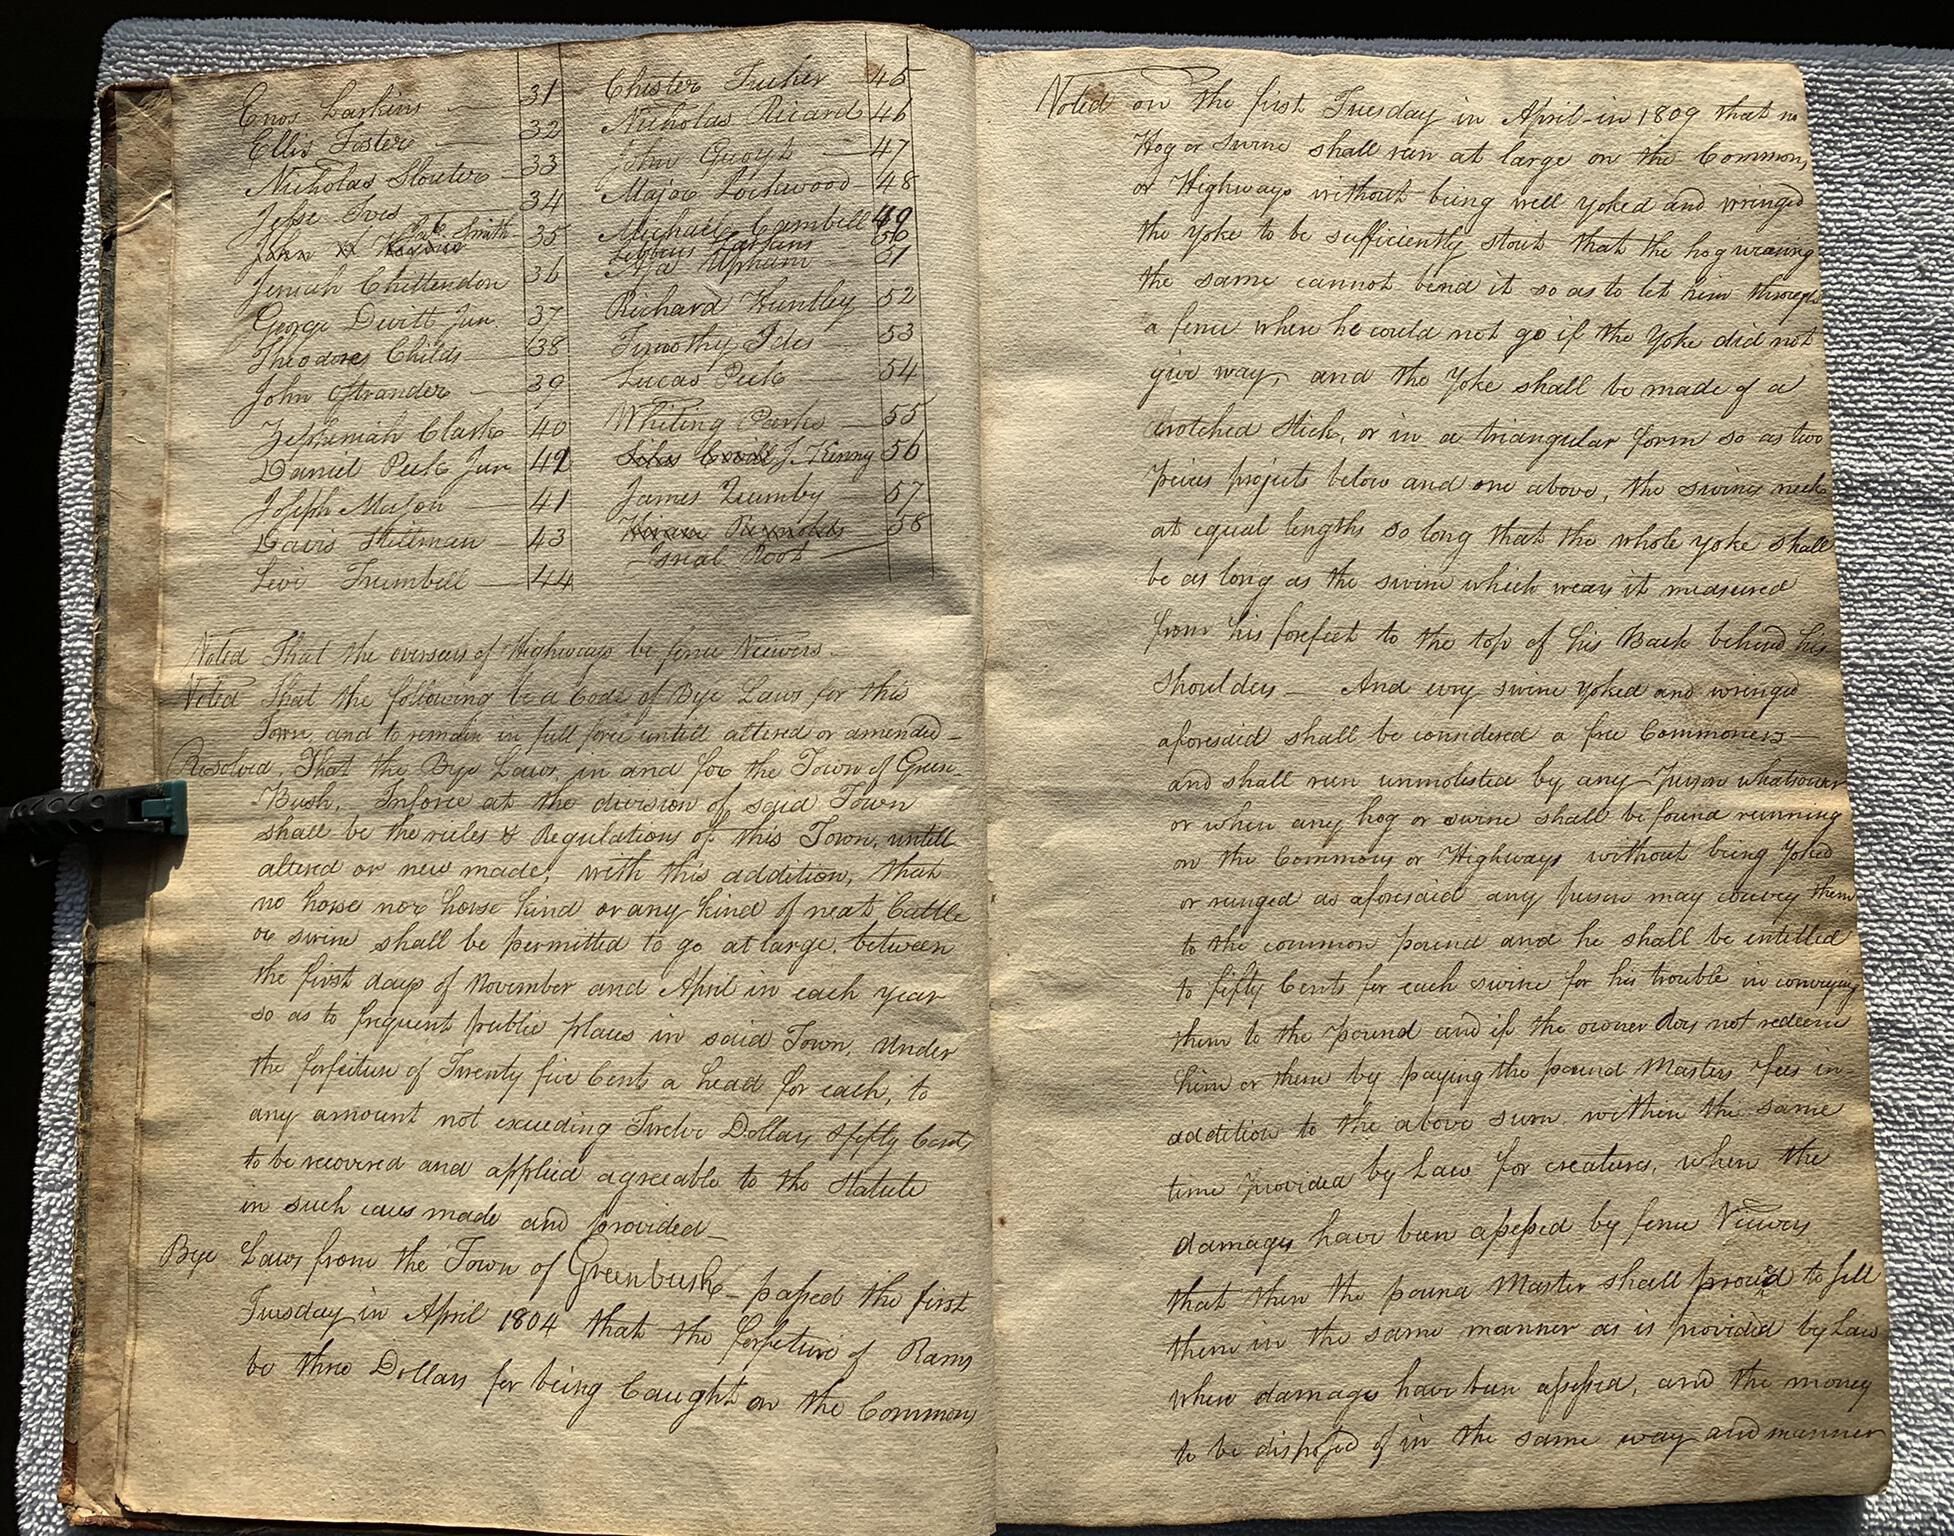 Enos Larkins 31
Ellis Foster 32
Nicholas Slouter 33
Jesse Ives 34
John Smith 35
Jeniah Chittendon 36
George Devitt Jun. 37
Theodores Childs 38
John Ostrander 39
Zephemiah Clark 40
Daniel Peck Jun 42
Joseph Mason 41
Davis Stillman 43
Levi Trumbell 44
Chester Tucker 45
Nicholas Ricard 46
John 47
Major Lockwood 48
Michael Cambell 49
Larkins 50
Asa Upham 51
Richard Huntley 52
Timothy Ides 53
Lucas Peck 54
Whiting Parks 55
J. Kenny 56
James Quimby 57
Hiram Reynolds 58
Isreal Root
Voted That the overseers of Highways be fence Viewers
Voted That the following be a Code of Bye Laws for this
Town, and to remain in full force untill altered or amended
Resolved, That the Bye Laws, in and for the Town of Green-
Bush, Inforce at the division of said Town
shall be the rules & Regulations of this Town, untill
altered or new made, with this addition, that
no horse nor horse kind or any kind of neat Cattle
or swine shall be permitted to go at large, between
the first days of November and April in each year
so as to frequent public places in said Town, Under
the forfeiture of Twenty five Cent a head for each, to
any amount not exceeding Twelve Dollars & fifty Cents
to be recovered and applied agreeable to the Statute
in such cases made and provided
Bye Laws from the Town of Greenbush passed the first
Tuesday in April 1804 that the forfeture of Rams
be three Dollars for being Caught on the Commons
Voted on the first Tuesday in April in 1809 that no
Hog or swine shall run at large on the Commons,
or Highways without being well yoked and wringed
the yoke to be sufficiently stout that the hog wearing
the same cannot bend it so as to let him through
a fence where he could not go if the Yoke did not
give way, and the Yoke shall be made of a
Crotched Stick, or in a triangular form so as two
peices projects below and one above, the swines neck
at equal lengths so long that the whole yoke shall
be as long as the swine which wears it measured
from his forefeet to the top of his Back behind his
shoulders And evry swine yoked and wringed
aforesaid shall be considered a free Commoners
and shall run unmolested by any Person whatsoever
or when any hog or swine shall be found running
on the Commons or Highways without being Yoked
or runged as aforesaid any person may convey them
to the common pound and he shall be intitled
to fifty Cents for each swine for his trouble in conveying
them to the pound and if the owner does not redeem
him or them by paying the pound Masters fees in
addition to the above sum within the same
time provided by Law for creatures, when the
damages have been assessed by fence Viewers
that then the pound Master shall proceed to sell
them in the same manner as is provided by Law
when damages have been assessed, and the money
to be disposed of in the same way and manner